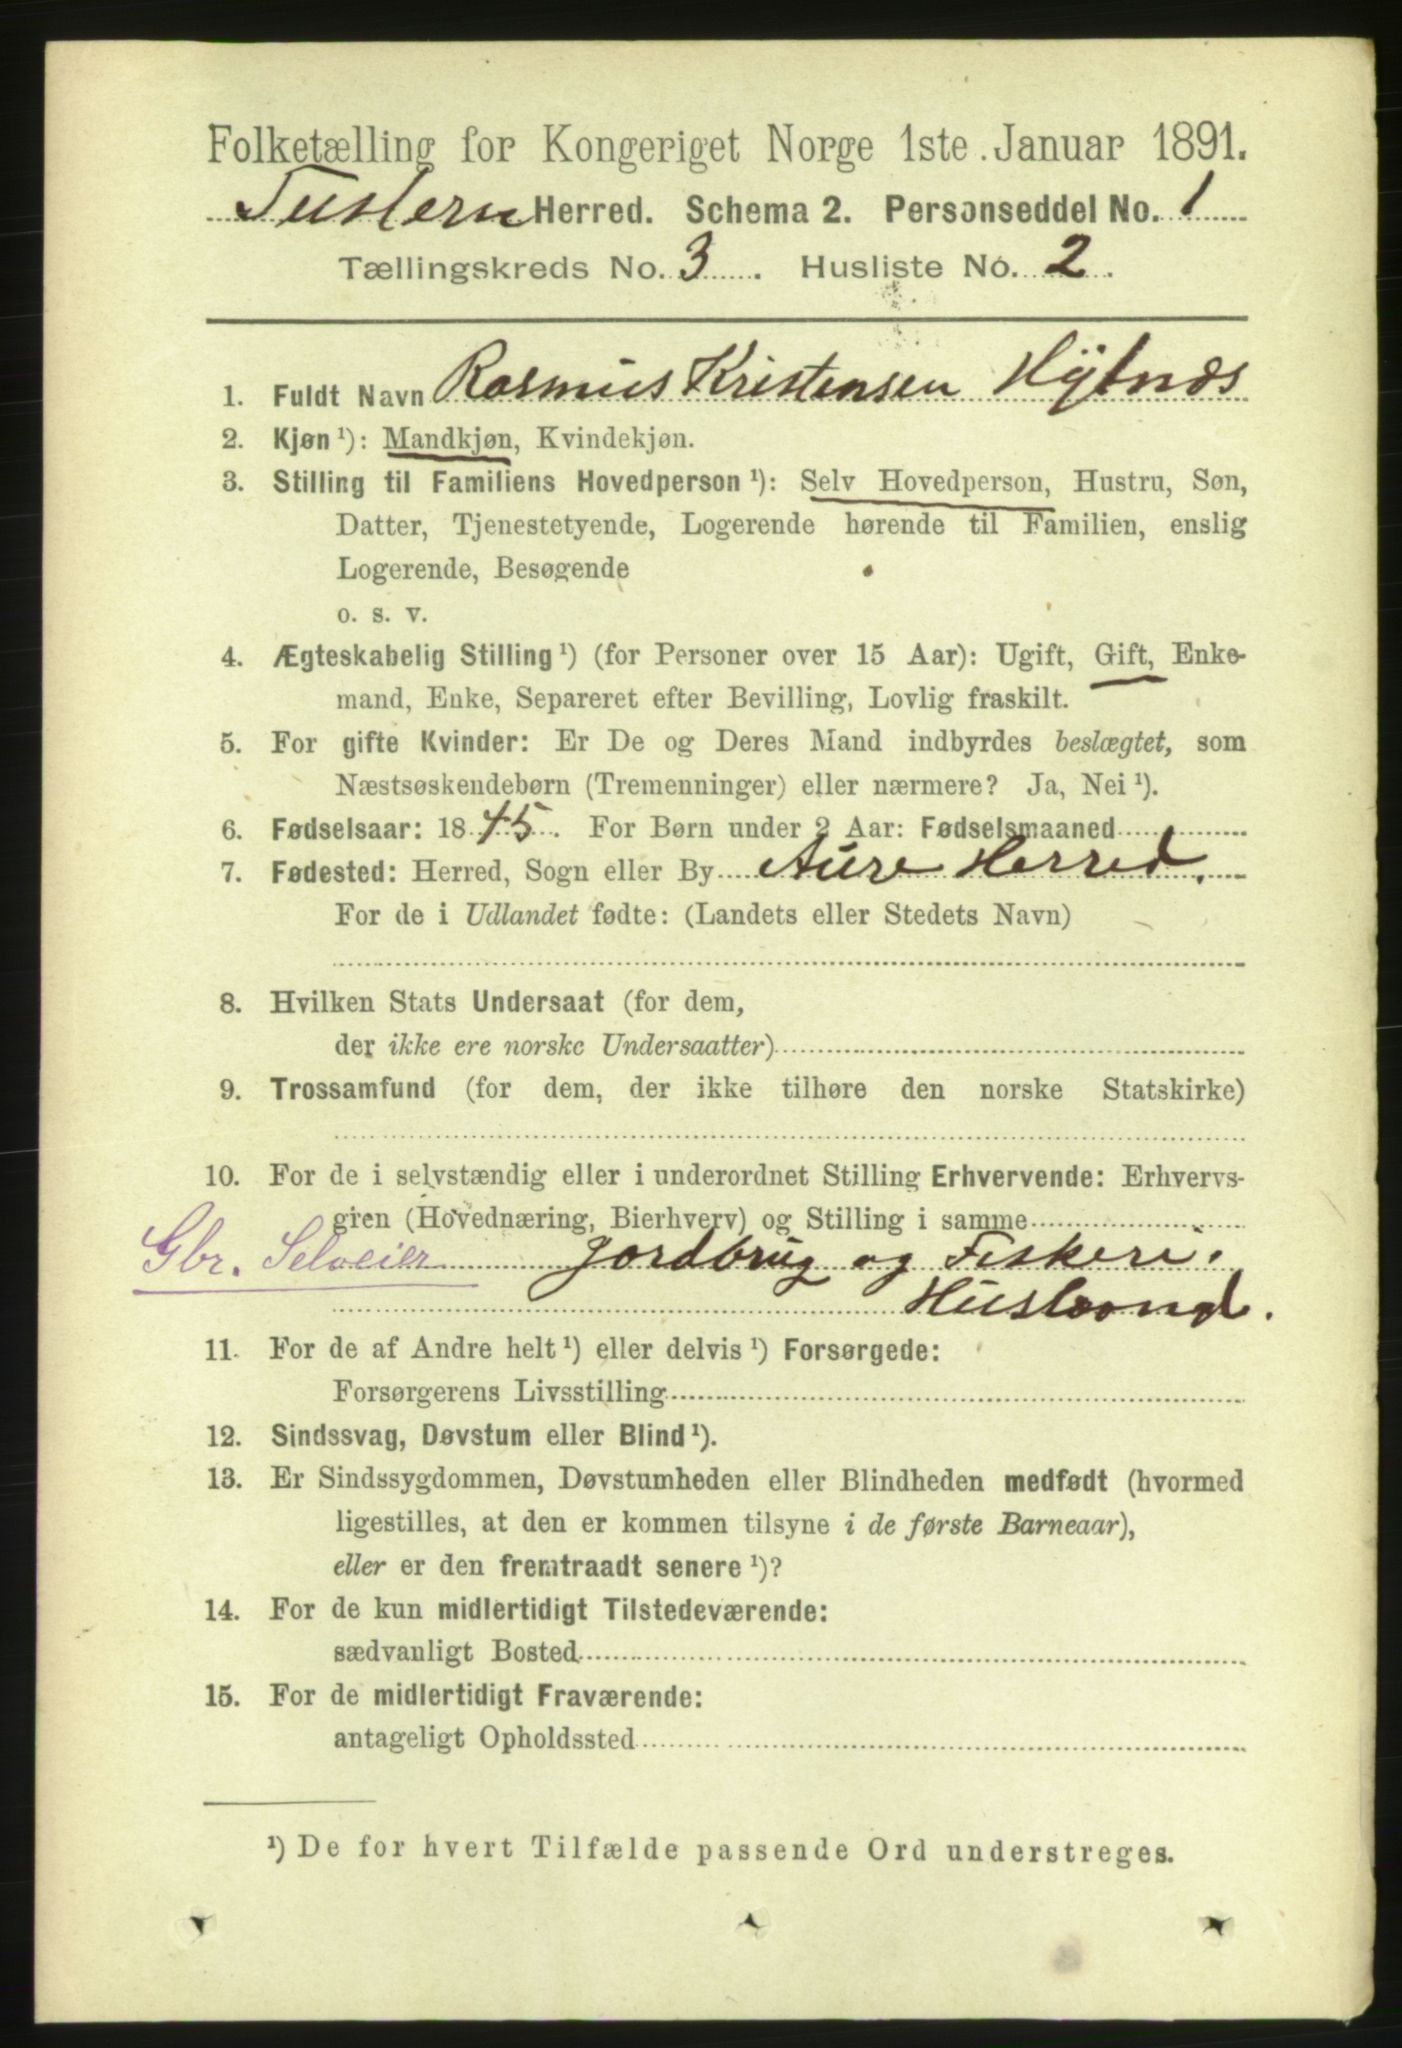 Folketælling for Kongeriget Norge 1ste Januar 1891.
Tustern Herred. Schema 2. Personseddel No. 1
Tællingskreds No. 3. Husliste No. 2.
1. Fuldt Navn Rasmus Kristensen
2. Kjøn ¹): Mandkjøn, Kvindekjøn.
3. Stilling til Familiens Hovedperson ¹): Selv Hovedperson, Hustru, Søn,
Datter, Tjenestetyende, Logerende hørende til Familien, enslig
Logerende, Besøgende
o. s. v.
4. Ægteskabelig Stilling ¹) (for Personer over 15 Aar): Ugift, Gift, Enke-
mand, Enke, Separeret efter Bevilling, Lovlig fraskilt.
5. For gifte Kvinder: Er De og Deres Mand indbyrdes beslægtet, som
Næstsøskendebørn (Tremenninger) eller nærmere? Ja, Nei ¹).
6. Fødselsaar: 1845. For Børn under 2 Aar: Fødselsmaaned
7. Fødested: Herred, Sogn eller By Aure Herred.
For de i Udlandet fødte: (Landets eller Stedets Navn)
8. Hvilken Stats Undersaat (for dem,
der ikke ere norske Undersaatter)
9. Trossamfund (for dem, der ikke tilhøre den norske Statskirke)
10. For de i selvstændig eller i underordnet Stilling Erhvervende: Erhvervs-
gren (Hovednæring, Bierhverv) og Stilling i samme
Gbr. Selveier Jordbrug og Fiskeri.
Husbond.
11. For de af Andre helt ¹) eller delvis ¹) Forsørgede:
Forsørgerens Livsstilling
12. Sindssvag, Døvstum eller Blind ¹).
13. Er Sindssygdommen, Døvstumheden eller Blindheden medfødt (hvormed
ligestilles, at den er kommen tilsyne i de første Barneaar),
eller er den fremtraadt senere ¹)?
14. For de kun midlertidigt Tilstedeværende:
sædvanligt Bosted
15. For de midlertidigt Fraværende:
antageligt Opholdssted
¹) De for hvert Tilfælde passende Ord understreges.